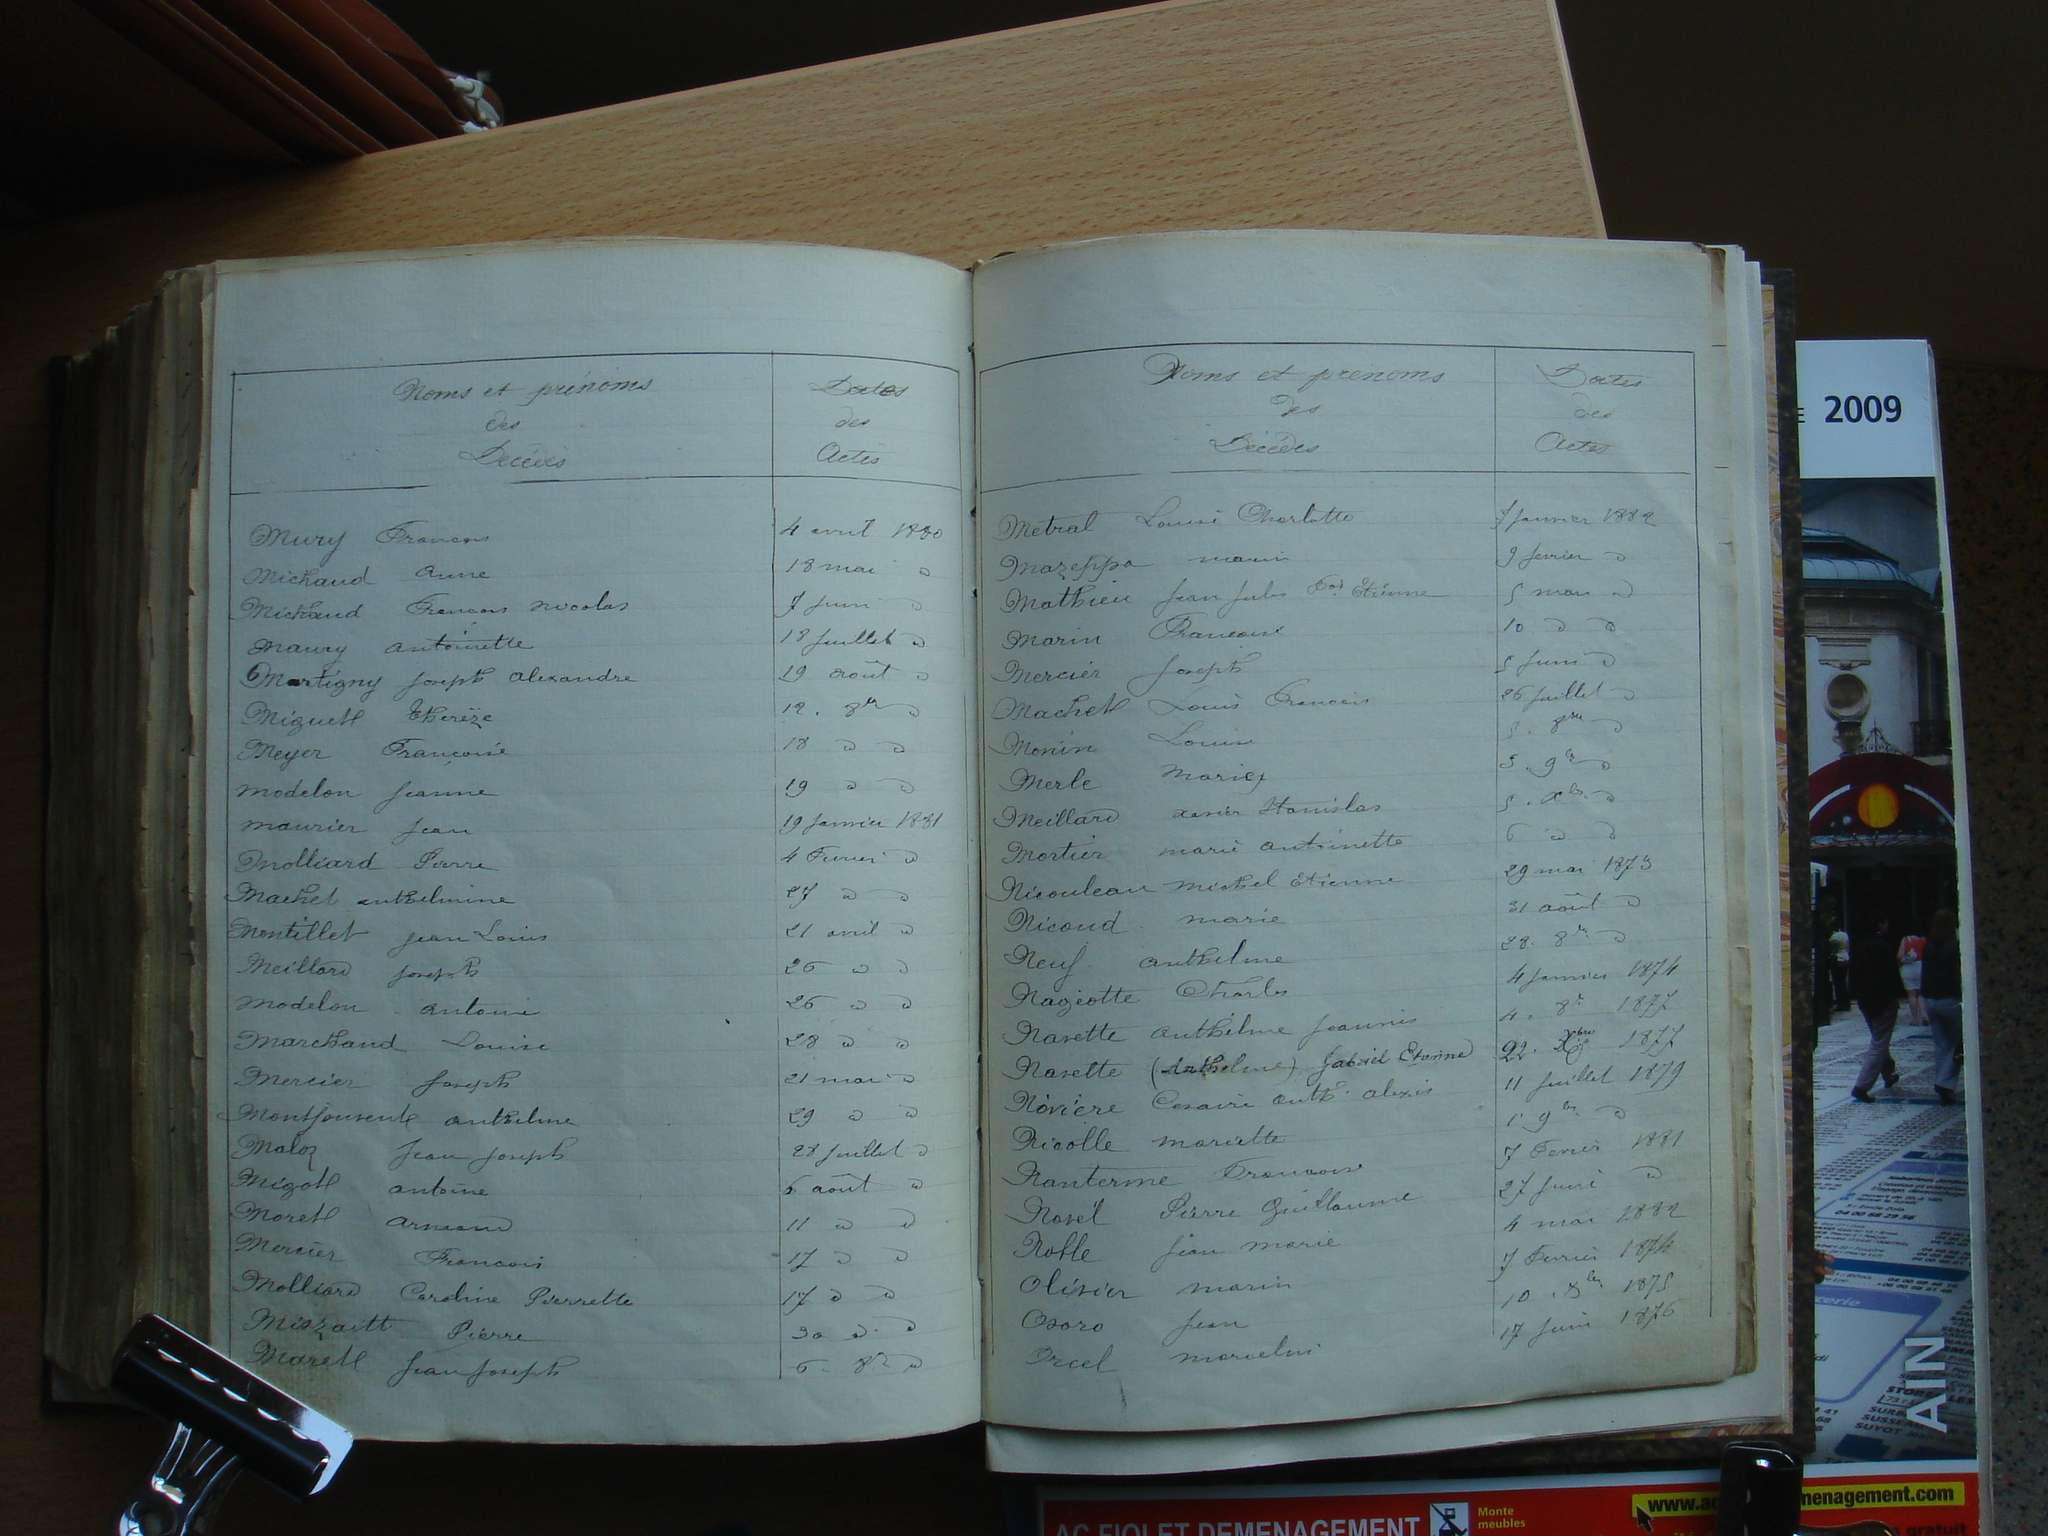 Noms et prénoms
des
Décédés
Dates
des
Actes
Mury François 4 avril 1880
Michaud Anne 18 mai d
Michaud François Nicolas 7 juin d
Maury antoinette 18 juillet d
Martigny Joseph Alexandre 29 août d
Miguett Therèze 12. 8bre d
Meyer Françoise 18 d d
Modelon Jeanne 19 d d
Maurier Jean 19 janvier 1881
Molliard Pierre 4 Fevrier d
Machet anthelmine 27 d d
Montillet Jean Louis 21 avril d
Meillard Joseph 26 d d
Modelon antoine 26 d d
Marchand Louise 28 d d
Mercier Joseph 21 mai d
anthelme 29 d d
Maloz Jean Joseph 28 juillet d
Migott antoine 6 août d
Morett Armand 11 d d
Mercier François 17 d d
Molliard Caroline Pierrette 17 d d
Pierre 30 d d
Marett Jean Joseph 6. 8bre d
Noms et prénoms
des
Décédés
Dates
des
Actes
Metral Louise Charlotte 7 janvier 1882
Mazeppa marie 9 fevrier d
Mathieu Jean Jules Etienne 5 mars d
Marin Françoise 10 d d
Mercier Joseph 5 juin d
Machett Louis François 26 juillet d
Monin Louise 5. 8bre d
Merle Marie 5. 9bre d
Meillard Xavier Stanislas 5. Xbre d
Mortier marie antoinette 6 d d
Nicouleau michel Etienne 29 mai 1873
Nicoud marie 31 août d
Neuf anthelme 28. 8bre d
Nageotte Charles 4 janvier 1874
Navette anthelme Jeannis 4. 8bre 1877
Navette (Anthelme) Gabriel Etienne 22. Xbre 1877
Nivière Cesaire anth. alexis 11 juillet 1879
Nicolle mariette 1. 9bre d
Nanterme Françoise 7 Fevrier 1881
Novel Pierre Guillaume 27 juin d
Noble Jean marie 4 mai 1882
Olivier marin 7 Fevrier 1874
Osoro Jean 10. Xbre 1875
Orcel marcelin 17 juin 1876
2009
AIN
AC FIOLET DEMENAGEMENT
Monte
meubles
menagement.com